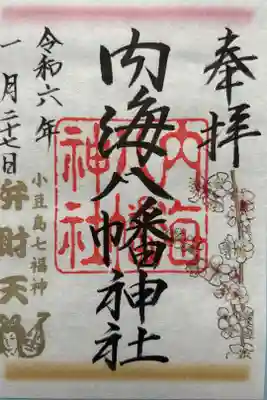 奉拝
内海八幡神社
内海八幡神社
令和六年
一月二十七日
小豆島七福神
弁財天